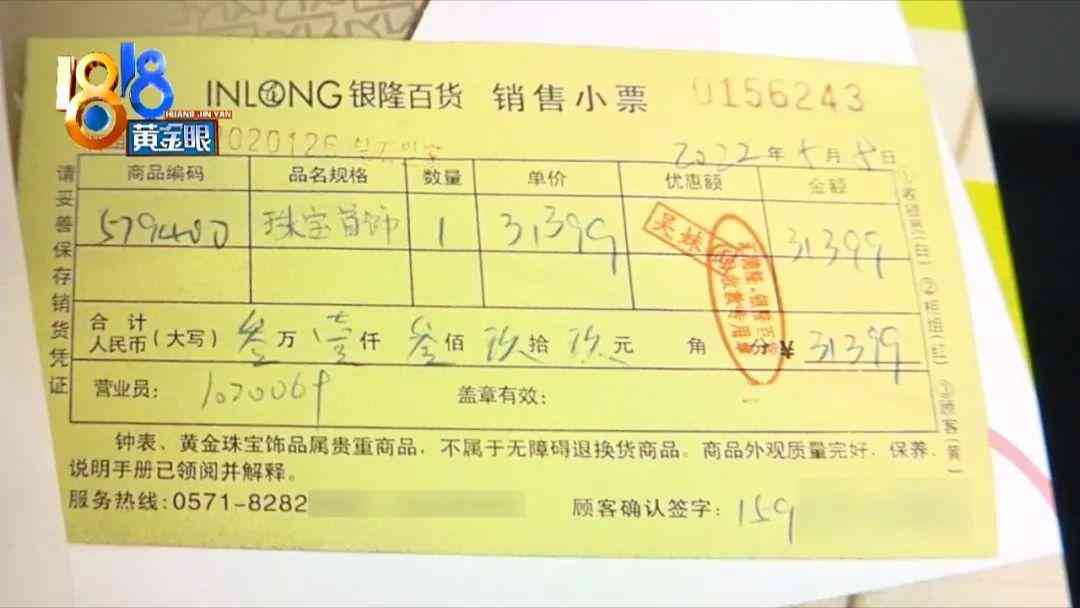 1818
HUANG JIN YAN
黄金眼
INLONG银隆百货 销售小票 0156243
1020126
2022年5月8日
商品编码 品名规格 数量 单价 优惠额 金额
579400 珠宝首饰 1 31399 31399
吴妹
合计人民币(大写) 叁万壹仟叁佰玖拾玖元 角 分 31399
营业员: 1020069 盖章有效:
钟表、黄金珠宝饰品属贵重商品,不属于无障碍退换货商品。商品外观质量完好,保养、
说明手册已领阅并解释。
服务热线:0571-8282 顾客确认签字: 159
请妥善保存销货凭证
①收银联(白) ②柜组(红) ①顾客(黄)